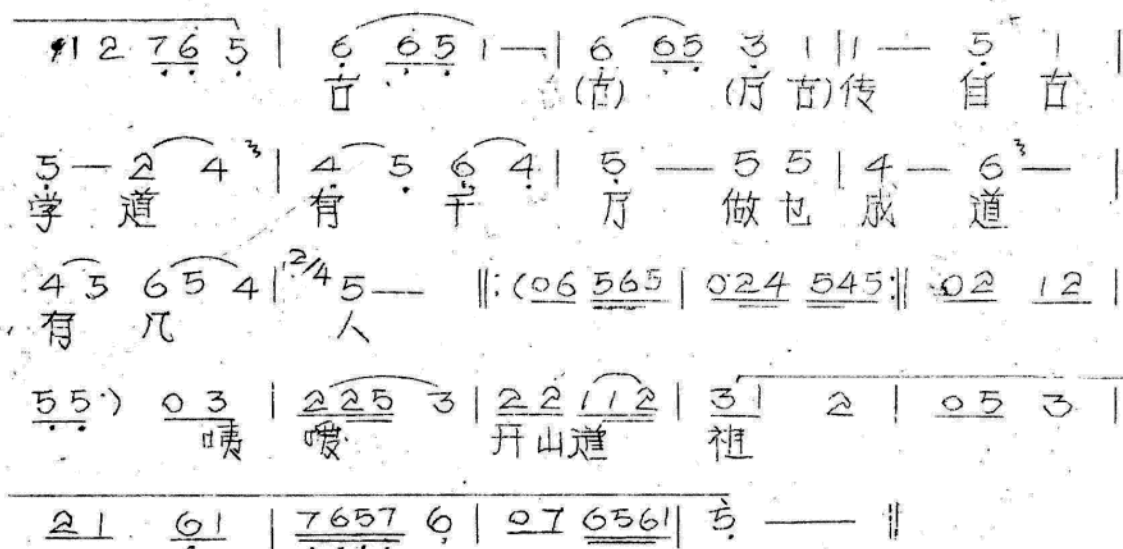 1 2 7 6 5 | 6 6 5 1 — | 6 6 5 3 1 | 1 — 5 1 |
古 (古) (万 古) 传 自 古
5 — 2 4 3 | 4 5 6 4 | 5 — 5 5 | 4 — 6 3 — |
学 道 有 千 万 做 也 成 道
4 5 6 5 4 | 2/4 5 — ‖: (0 6 5 6 5 | 0 2 4 5 4 5 :‖ 0 2 1 2 |
有 几 人
5 5 ) 0 3 | 2 2 5 3 | 2 2 1 1 2 | 3 1 2 | 0 5 3 |
咦 嗳 开 山 道 祖
2 1 6 1 | 7 6 5 7 6 | 0 7 6 5 6 1 | 5 — ‖